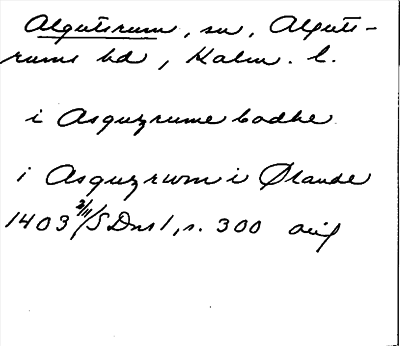 Algutsrum, sn, Alguts-
rums hd, Kalm. l.
i Asguzrume bodhe
i Asguzrwm i Ølande
1403 2/11 SDns 1, s. 300 orig